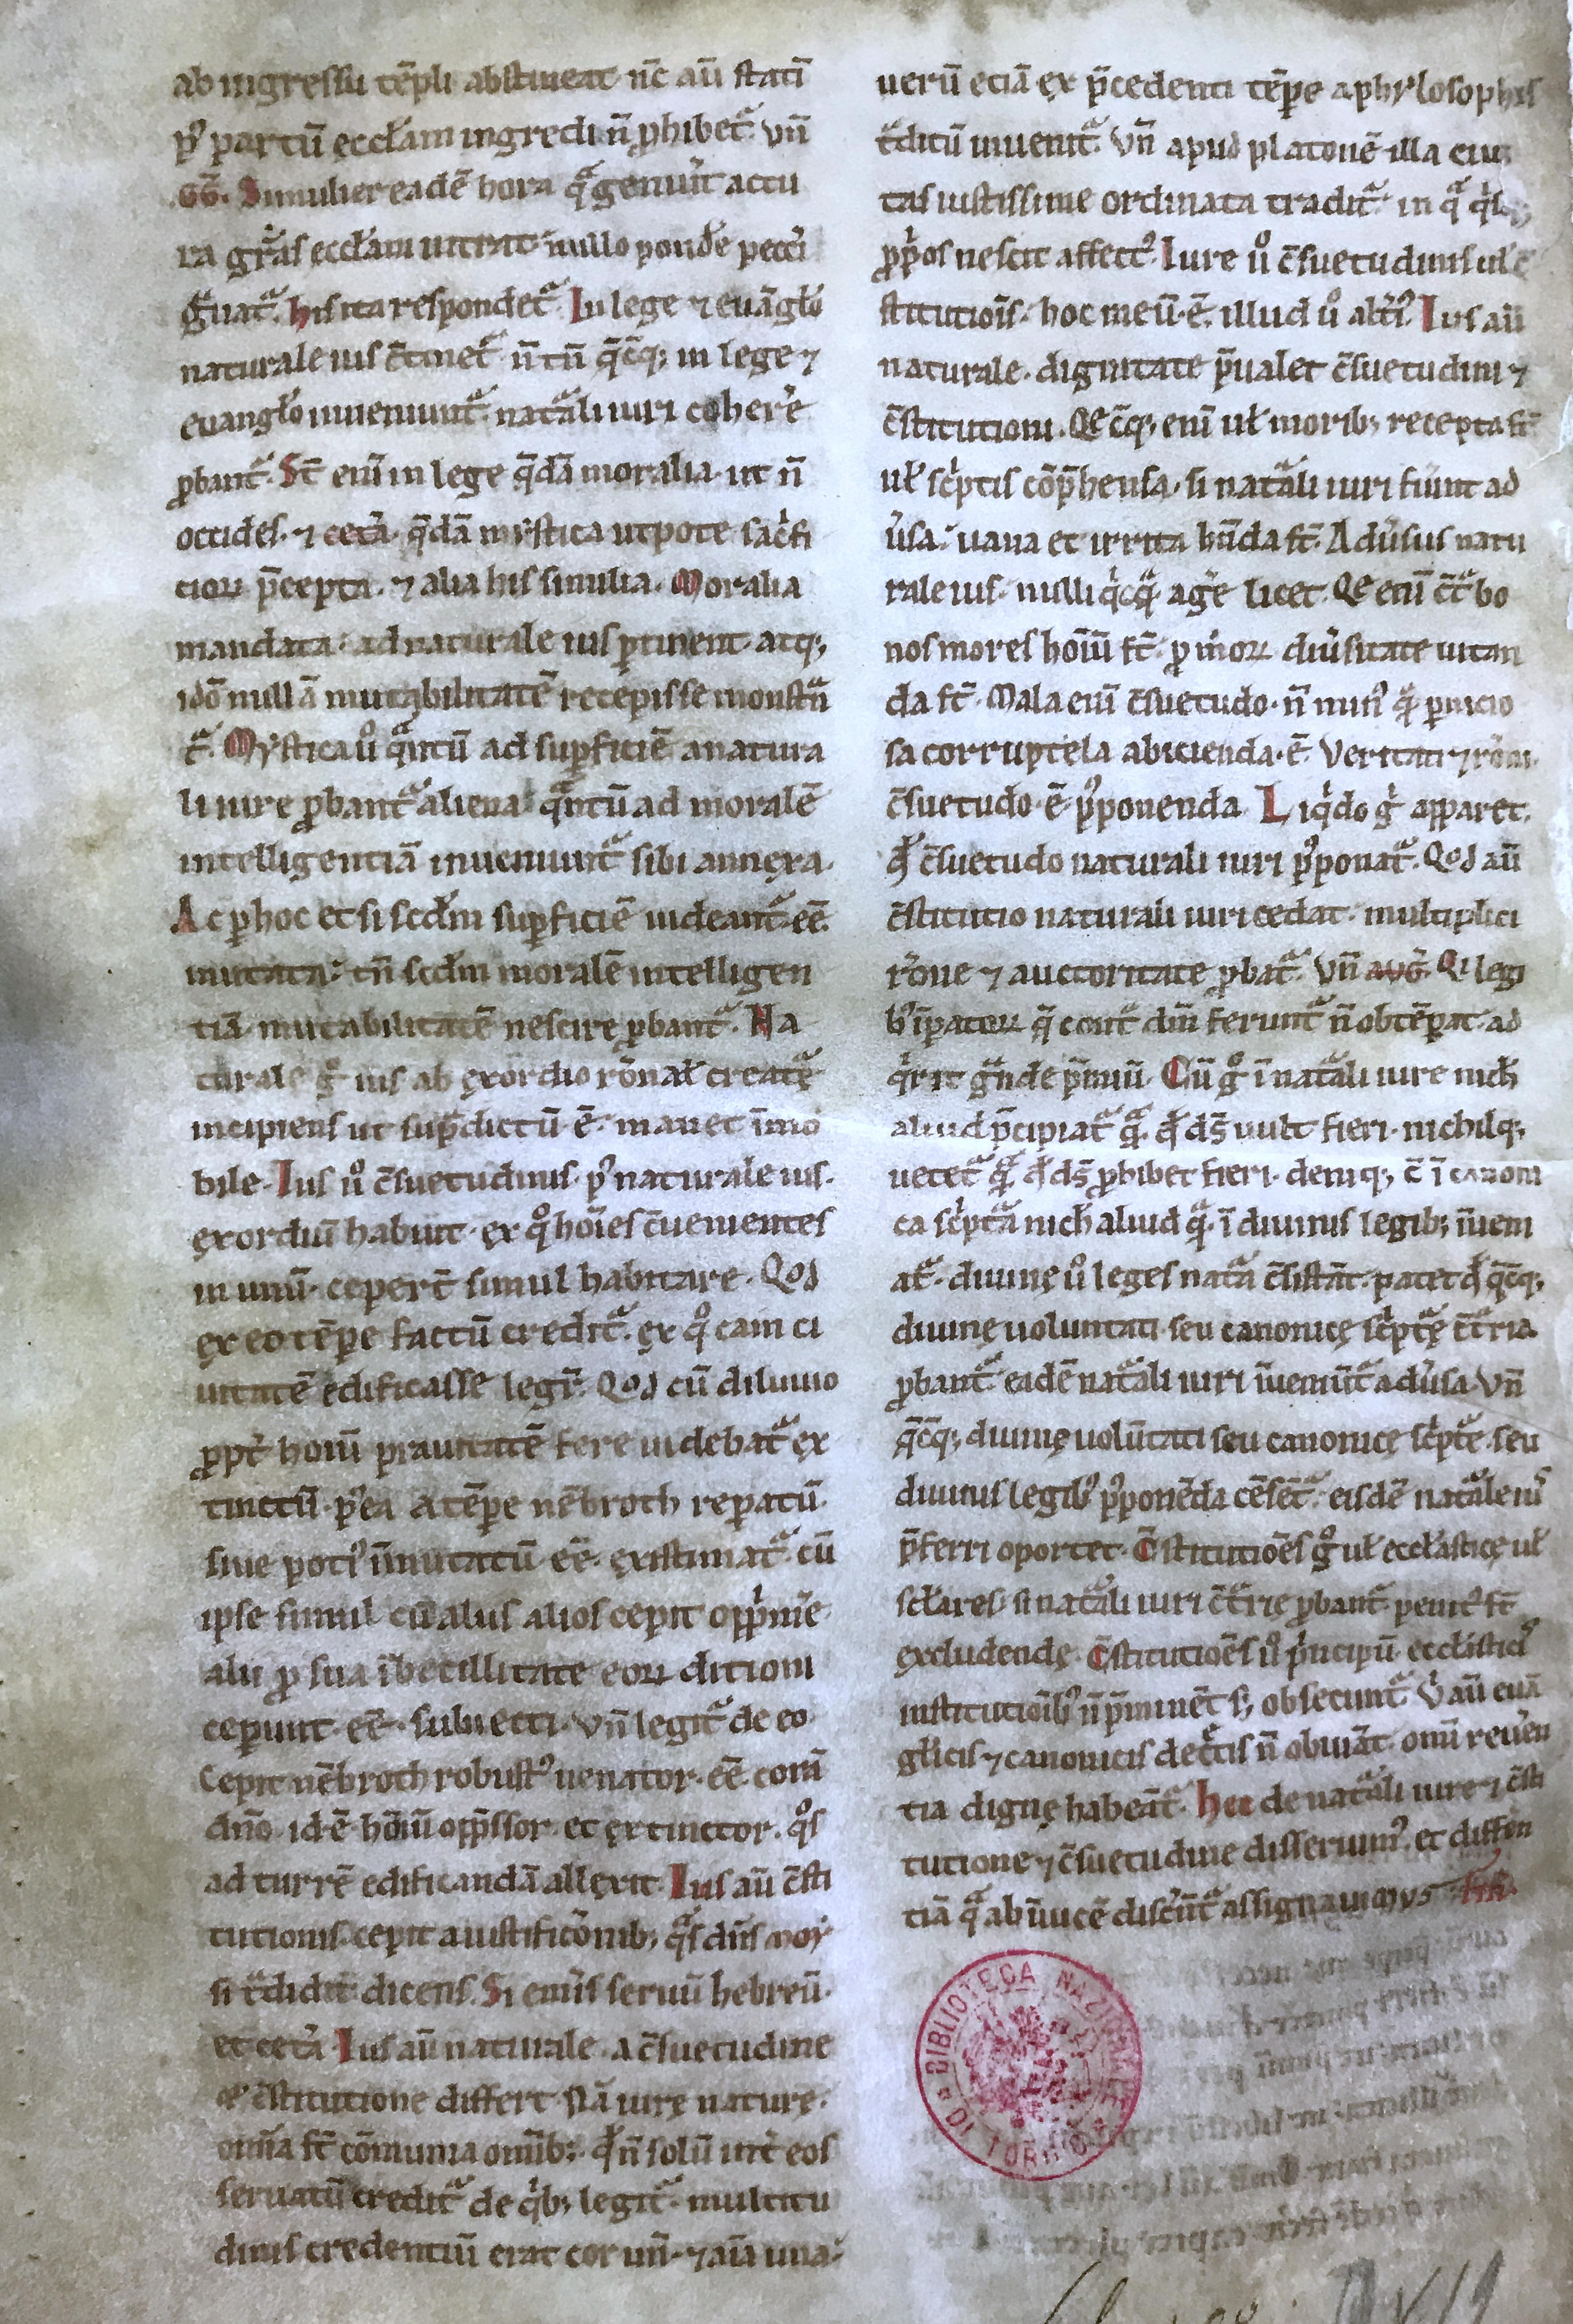 ab ingressu te̅pli abstineat· n̅c au̅ stati̅
pꝰ partu̅ ęccłam ingredi n̅ ꝓhibet᷑. vn̅
.GG̅. Si mulier eade̅ hora qᷓ genuit actu
ra gr̅as eccłam intrat· nullo pond̅e pecc̅i
gͣuat᷑. his ita respondet᷑. In lege ⁊ eua̅gło
naturale ius c̅tinet᷑. n̅ tn̅ q̅cq; in lege ⁊
euangło inueniunt᷑. nat᷑ali iuri coher̅e
ꝓbant᷑. St̅ eni̅ in lege q̅da̅ moralia· ut n̅
occides· ⁊ cet̅a· q̅da̅ mystica utpote sac̅fi
cioꝝ p̅cepta· ⁊ alia his similia. Moralia
mandata· ad naturale ius ꝑtinent· atq;
ido̅ nulla̅ mutabilitate̅ recepisse monstra̅
t᷑. Mystica uͦ qͣntu̅ ad suꝑficie̅ a natura
li iure ꝓbant᷑ aliena· qͣntu̅ ad morale̅
intelligentia̅ inueniunt᷑ sibi annęxa.
Ac ꝑ hoc et si scd̅m suꝑficie̅ uideant᷑ ee̅
mutata· tn̅ scd̅m morale̅ intelligen
tia̅ mutabilitate̅ nescire ꝓbant᷑. Na
turale gͦ ius ab ęxordio ro̅nał creatᷓę
incipiens ut supᷓdictu̅ e̅· manet i̅mo
bile. Ius uͦ c̅suetudinis· pꝰ naturale ius·
ęxordiu̅ habuit· ęx qͦ ho̅ies c̅uenientes
in unu̅· ceper̅t simul habitare. Qod
ęx eo te̅pe factu̅ credit᷑. ęx qͦ cain ci
uitate̅ edificasse legit᷑. Qod cu̅ diluuio
ꝓpt̅ hoiu̅ prauitate̅ fere uidebat᷑ ęx
tinctu̅· pꝰea a te̅pe ne̅broth reparatu̅
siue potiꝰ i̅mutatu̅ ee̅· ęxistimat᷑. cu̅
ipse simul cu̅ aliis alios cepit opp̅im̅e·
alii ꝓ sua i̅becillitate eoꝝ ditioni
ceperunt· ee̅· subiecti. Vn̅ legit᷑ de eo·
Cepit ne̅broth robustꝰ uenator· ee̅ cora̅
dn̅o· id· e̅· ho̅iu̅ opp̅ssor· et ęxtinctor. qͦs
ad turre̅ edificanda̅ allęxit. Ius au̅ c̅sti
tutionis· cepit a iustifico̅nib; qͣs dn̅s moy
si tᷓdidit dicens. Si em̅is seruu̅ hebreu̅·
et cet̅a. Ius au̅ naturale· a c̅suetudine
⁊ c̅stitutione differt· na̅ iurę naturę·
om̅ia st̅ co̅munia om̅ib; qd̅ n̅ solu̅ int̅ eos
seruatu̅ credit᷑ de qͥb; legit᷑· multitu
dinis credentiu̅ erat cor un̅· ⁊ aı̅a una·
ueru̅ ecia̅ ęx p̅cedenti te̅pe a phylosophis
tᷓditu̅ inuenit᷑. Vn̅ apud platone̅ illa ciui
tas iustissime ordinata tradit᷑· in qᷓ qͥsq;
ꝓpͥos nescit affectꝰ. Iure uͦ c̅suetudinis uł c̅
stitutiois̅· hoc meu̅· e̅· illud uͦ alt̅iꝰ. Ius au̅
naturale· dignitate p̅ualet c̅suetudini ⁊
c̅stitutioni. Qe̅cq; eni̅ uł morib; recepta st̅
uł sc̅ptis co̅p̅hensa· si nat᷑ali iuri fuint ad
u̅sa· uana et irrita hn̅da st̅. Adu̅sus natu
rale ius· nulli qͥcqᷓ· ag̅e licet. Qe eni̅ c̅tᷓ bo
nos mores hoiu̅ st̅· ꝓ moꝝ diu̅sitate uitan
da st̅. Mala eni̅ c̅suetudo· n̅ minꝰ qᷓ ꝑnicio
sa corruptela abicienda· e̅· Veritati ⁊ ro̅ni·
c̅suetudo· e̅· pꝰponenda. Liqͥdo gͦ apparet·
qd̅ c̅suetudo naturali iuri pꝰponat᷑. Qod au̅
c̅stitutio naturali iuri cedat· multiplici
ro̅ne ⁊ auctoritate ꝓbat᷑. Vn̅ AVG̅. Qi legi
bꝰ i̅patoꝝ q̅ cont᷑ dm̅ ferunt᷑ n̅ obte̅perat· ad
qͥrit gͣnde p̅miu̅. Cu̅ gͦ i̅ nat᷑ali iure nich̅
aliud p̅cipiat᷑ qᷓ· qd̅ ds̅ uult fieri· nichilq;
uetet᷑ qᷓ qd̅ ds̅ ꝓhibet fieri· deniq; c̅ i̅ canoni
ca sc̅ptᷓa nich̅ aliud qᷓ· i̅ diuinis legib; i̅ueni
at᷑· diuinę uͦ leges natᷓa c̅sista̅t· patet qd̅ q̅cq;
diuinę uoluntati· seu canonicę sc̅ptᷓę c̅tᷓria
ꝓbant᷑ eade̅ nat᷑ali iuri i̅ueniu̅t᷑ adu̅sa. Vn̅
q̅cq; diuinę uolu̅tati seu canonicę sc̅ptᷓę seu
diuinis legibꝰ pꝰpone̅da ce̅se̅t᷑· eisde̅ nat᷑ale iuꝰ
p̅ferri oportet. C̅stitutioe̅s gͦ uł eccłasticę uł
scłares· si nat᷑ali iuri c̅tᷓrię ꝓbant᷑ penitꝰ st̅
ęxcludendę. C̅stitutioe̅s uͦ pͥncipu̅ eccłisticꝰ
institutioı̅bꝰ n̅ p̅mine̅t s; obsecunt᷑. Vͥ au̅ eua̅
głicis ⁊ canonicis decᷓtis n̅ obuia̅t· omi̅ reu̅en
tia dignę habea̅t᷑. Hec de nat᷑ali iure ⁊ c̅sti
tutione ⁊ c̅suetudine disseruimꝰ· et differen
tia̅ qᷓ ab i̅uice̅ disc̅nt᷑ assignauimus
BIBLIOTECA NAZIONALE
DI TORINO